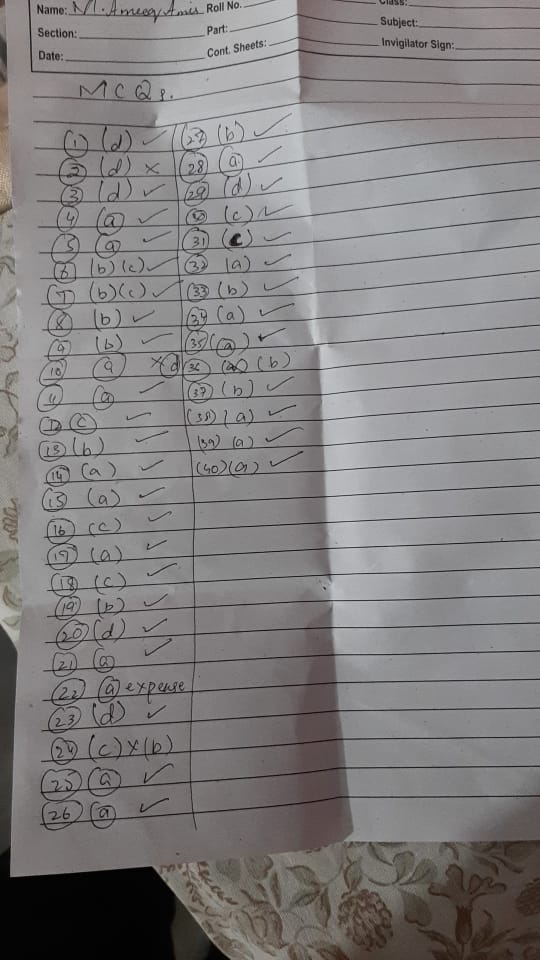 Name: M. Ameeq Anis Roll No. Class:
Section: Part: Subject:
Date: Cont. Sheets: Invigilator Sign:
MCQs.
1 (d) ✓
2 (d) ×
3 (d) ✓
4 (a) ✓
5 (a) ✓
6 (b)(c) ✓
7 (b)(c) ✓
8 (b) ✓
9 (b) ✓
10 (a) × (d
11 (a) ✓
12 (c) ✓
13 (b) ✓
14 (a) ✓
15 (a) ✓
16 (c) ✓
17 (a) ✓
18 (c) ✓
19 (b) ✓
20 (d) ✓
21 (a) ✓
22 (a) expense
23 (d) ✓
24 (c) × (b)
25 (a) ✓
26 (a) ✓
27 (b) ✓
28 (a) ✓
29 (d) ✓
30 (c) ✓
31 (c) ✓
32 (a) ✓
33 (b) ✓
34 (a) ✓
35 (a) ✓
36 (a) (b)
37 (b) ✓
(38) (a) ✓
(39) (a) ✓
(40) (a) ✓